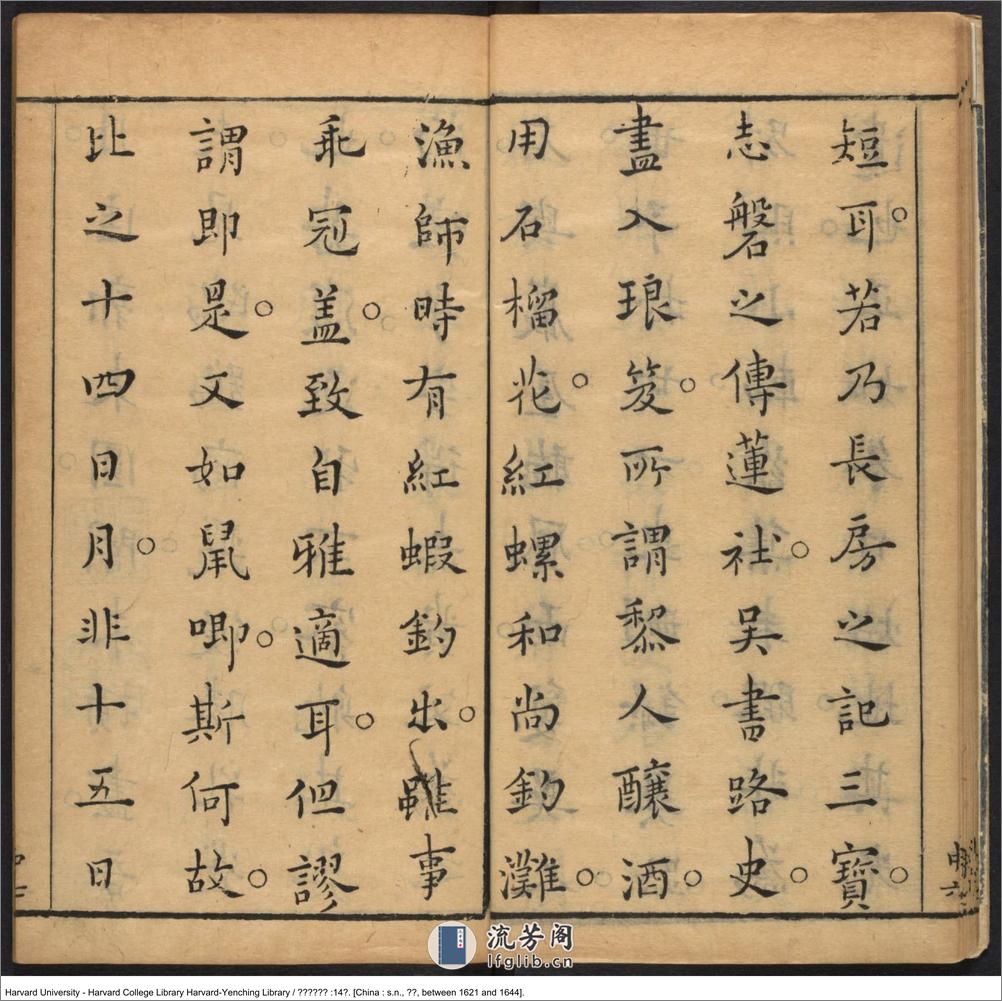 短耳○若乃長房之記三寶○
志磐之傳蓮社○吴書路史○
盡入琅笈○所謂黎人釀酒○
用石榴花○紅螺和尚釣灘○
漁師時有紅蝦釣出○雖事
乖冠盖○致自雅適耳○但謬
謂即是○文如鼠唧○斯何故○
比之十四日月○非十五日
流芳阁
lfglib.cn
Harvard University - Harvard College Library Harvard-Yenching Library / ?????? :14?. [China : s.n., ??, between 1621 and 1644].